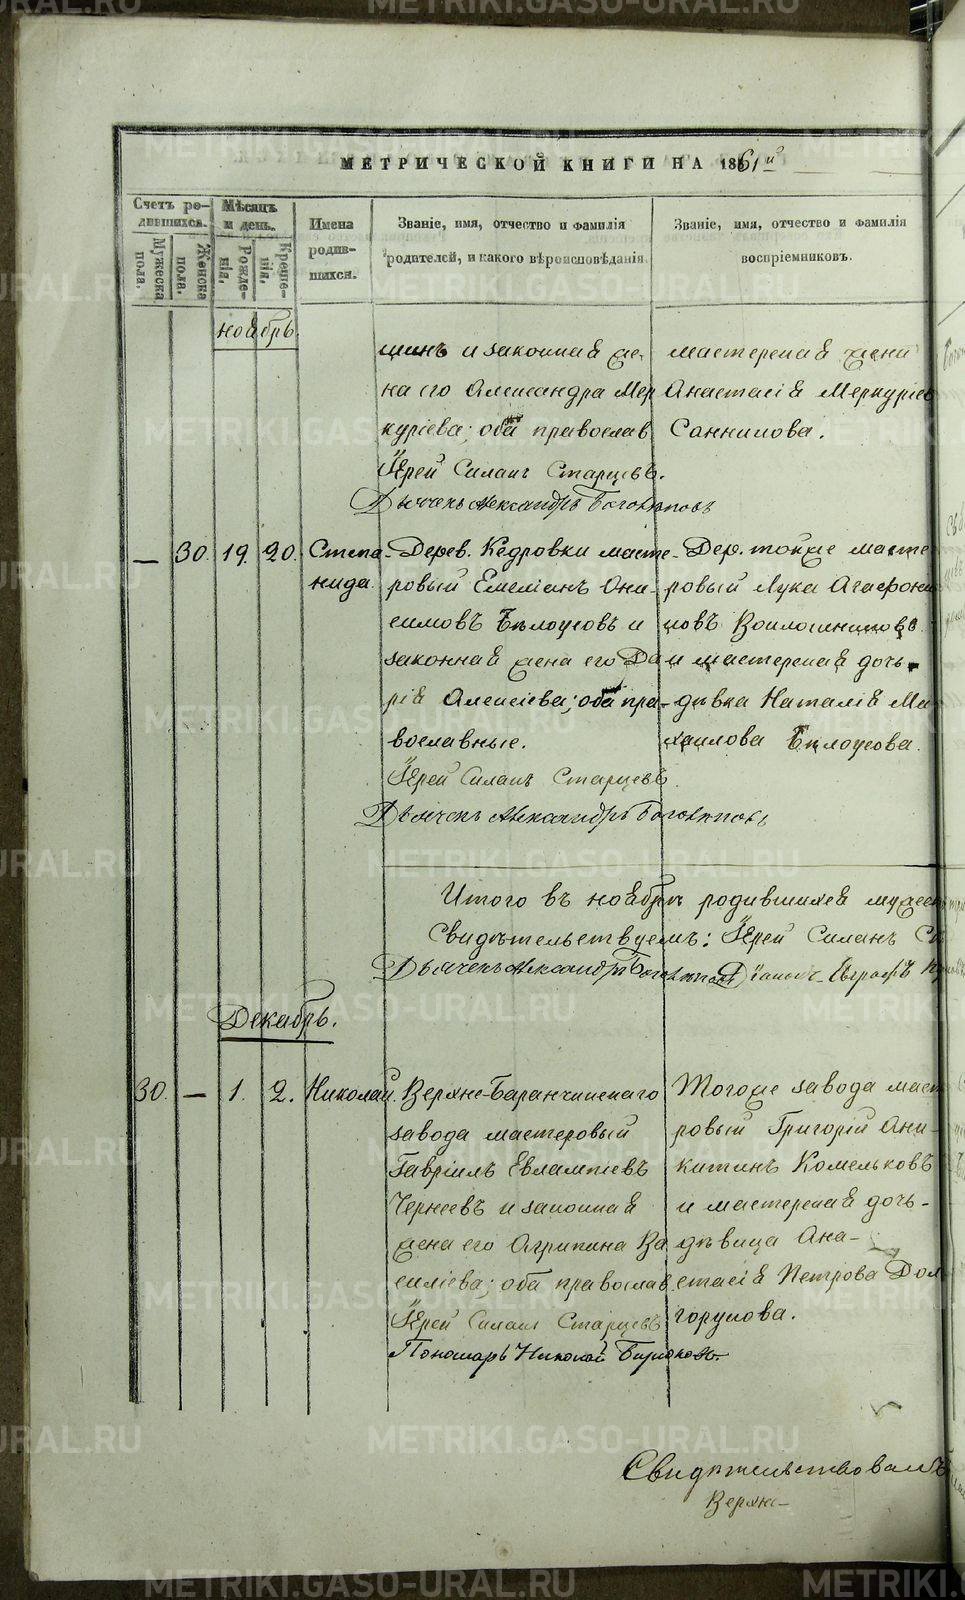 МЕТРИЧЕСКОЙ КНИГИ НА 1861й
Счетъ ро-
дившихся.
Мужеска
пола.
Женска
пола.
Мѣсяцъ
и день.
Рожде-
нія.
Креще-
нія.
Имена
родив-
шихся.
Званіе, имя, отчество и фамилія
родителей, и какого вѣроисповѣданія.
Званіе, имя, отчество и фамилія
воспріемниковъ.
ноябрь.
шинъ и законная же-
на его Александра Мер
куріева; оба православ
Іерей Силанъ Старцевъ.
Дьячекъ Александръ
мастерская жена
Анастасія Меркуріев
Санникова.
— 30. 19. 20.
Степа-
нида.
Дерев. Кедровки масте-
ровый Емеліанъ Они-
симовъ Бѣлоусовъ и
законная жена его Да
рія Алексіева; оба пра-
вославные.
Іерей Силанъ Старцевъ.
Дьячекъ Александръ
Дер. тойже масте
ровый Лука Агафони
ковъ
и мастерская дочь
дѣвка Наталія Ми
хаилова Бѣлоусова.
Итого въ ноябрѣ родившихся мужеск
Свидѣтельствуемъ: Іерей Силанъ Ст
Дьячекъ Александръ
Декабрь.
30. — 1. 2.
Николай.
Верхне-Баранчинскаго
завода мастеровый
Гавріилъ Евлампіевъ
Чернеевъ и законная
жена его Агрипина Ва
силіева; оба православ.
Іерей Силанъ Старцевъ
Пономарь Николай Бирюковъ.
Тогоже завода маст
ровый Григорій Ани-
китинъ Комельковъ
и мастерская дочь-
дѣвица Ана-
стасія Петрова Дол
горукова.
Свидѣтельствовалъ
Верхне-
METRIKI.GASO-URAL.RU